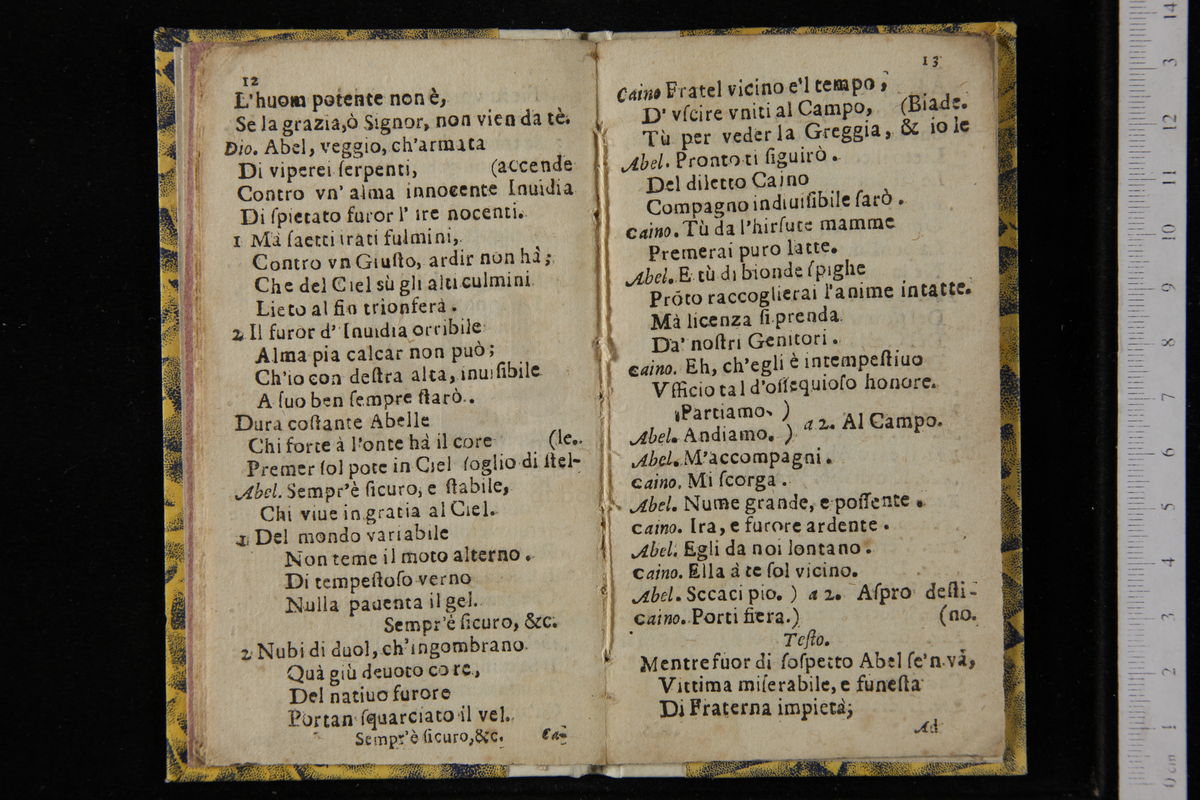 12
L'huom potente non è,
Se la grazia, ò Signor, non vien da tè.
Dio. Abel, veggio, ch'armata
Di viperei ſerpenti, (accende
Contro vn' alma innocente Inuidia
Di ſpietato furor l' ire nocenti.
1 Mà ſaetti irati fulmini,
Contro vn Giuſto, ardir non hà;
Che del Ciel sù gli alti culmini
Lieto al fin trionferà.
2 Il furor d' Inuidia orribile
Alma pia calcar non può;
Ch'io con deſtra alta, inuiſibile
A ſuo ben ſempre ſtarò.
Dura coſtante Abelle
Chi forte à l'onte hà il core (le.
Premer ſol pote in Ciel ſoglio di ſtel-
Abel. Sempr'è ſicuro, e ſtabile,
Chi viue in gratia al Ciel.
1 Del mondo variabile
Non teme il moto alterno.
Di tempeſtoſo verno
Nulla pauenta il gel.
Sempr'è ſicuro, &c.
2 Nubi di duol, ch'ingombrano
Quà giù deuoto core,
Del natiuo furore
Portan ſquarciato il vel.
Sempr'è ſicuro, &c. Cai-
13
Caino Fratel vicino e'l tempo,
D' vſcire vniti al Campo, (Biade.
Tù per veder la Greggia, & io le
Abel. Pronto ti ſiguirò.
Del diletto Caino
Compagno indiuiſibile ſarò.
Caino. Tù da l'hirſute mamme
Premerai puro latte.
Abel. E tù di bionde ſpighe
Prõto raccoglierai l'anime intatte.
Mà licenza ſi prenda
Da' noſtri Genitori.
Caino. Eh, ch'egli è intempeſtiuo
Vfficio tal d'oſſequioſo honore.
Partiamo. )
Abel. Andiamo. ) a 2. Al Campo.
Abel. M'accompagni.
Caino. Mi ſcorga.
Abel. Nume grande, e poſſente.
Caino. Ira, e furore ardente.
Abel. Egli da noi lontano.
Caino. Ella à te ſol vicino.
Abel. Sccaci pio. ) a 2. Aſpro deſti-
Caino. Porti fiera. ) (no.
Teſto.
Mentre fuor di ſoſpetto Abel ſe'n và,
Vittima miſerabile, e funeſta
Di Fraterna impietà;
Ad